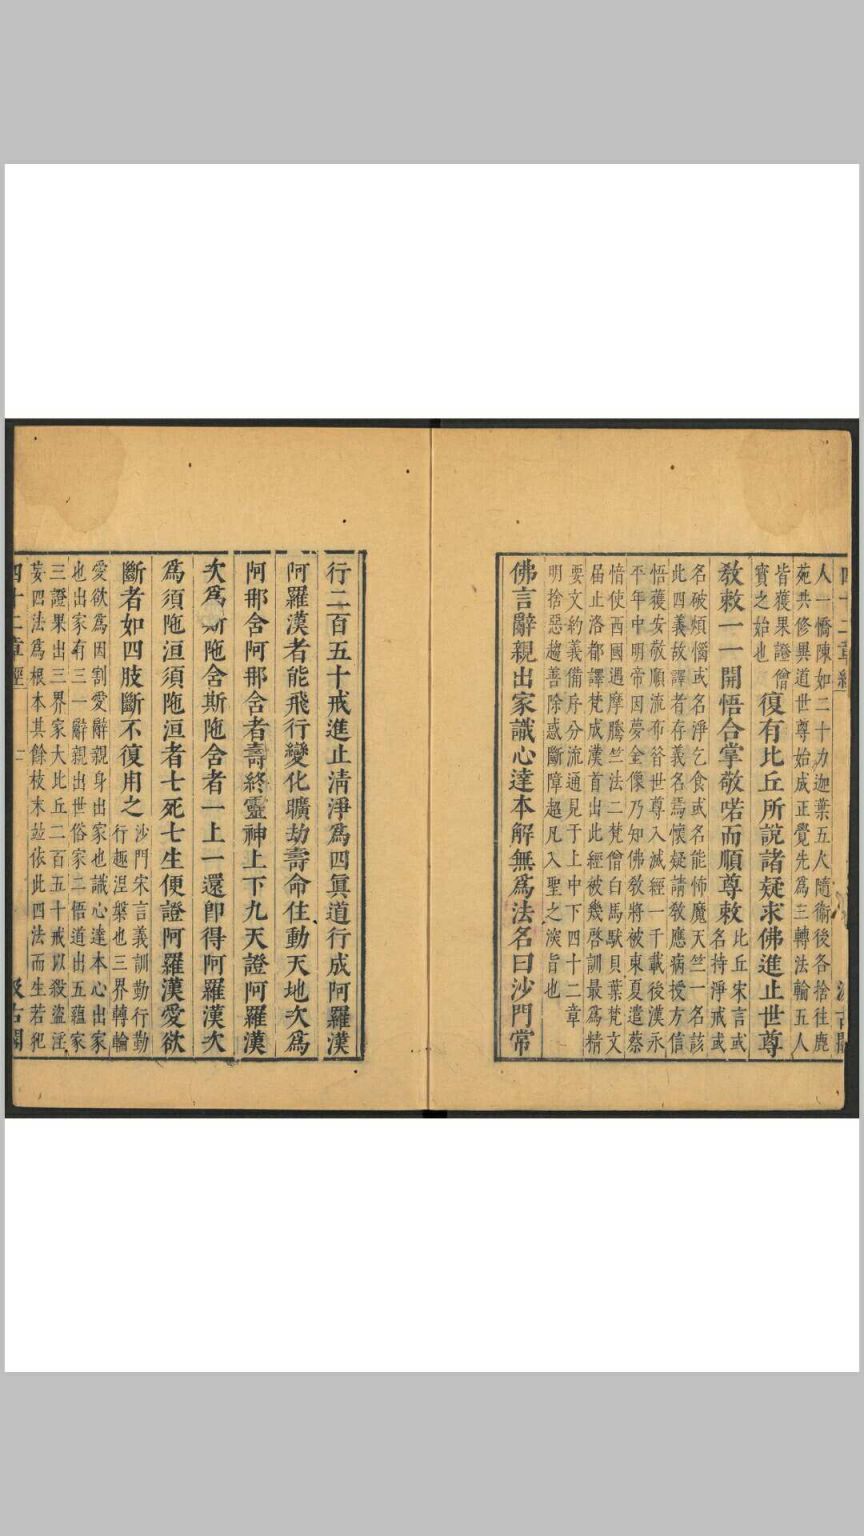 四十二章經
人一憍陳如二十力迦葉五人隨衞後各捨往鹿
苑共修異道世尊始成正覺先爲三轉法輪五人
皆獲果證僧
寳之始也
復有比丘所說諸疑求佛進止世尊
教敕一一開悟合掌敬喏而順尊敕
比丘宋言或
名持淨戒或
名破煩惱或名淨乞食或名能怖魔天竺一名該
此四義故譯者存義名焉懷疑請敎應病授方信
悟獲安敬順流布昝世尊入滅經一千載後漢永
平年中明帝因夢金像乃知佛敎將被東夏遣蔡
愔使西國遇摩騰竺法二梵僧白馬馱貝葉梵文
届止洛都譯梵成漢首出此經被幾啓訓最爲精
要文約義備序分流通見于上中下四十二章
明捨惡趨善除惑斷障超凡入聖之漩旨也
佛言辭親出家識心達本解無爲法名曰沙門常
行二百五十戒進止清淨爲四眞道行成阿羅漢
阿羅漢者能飛行變化曠劫壽命住動天地次爲
阿那舍阿那舍者壽終靈神上下九天證阿羅漢
次爲斯陁舍斯陁舍者一上一還卽得阿羅漢次
爲須陁洹須陁洹者七死七生便證阿羅漢愛欲
斷者如四肢斷不復用之
沙門宋言義訓勤行勤
行趣涅槃也三界轉輪
愛欲爲因割愛辭親身出家也識心達本心出家
也出家有三一辭親出世俗家二悟道出五蘊家
三證果出三界家大比丘二百五十戒以殺盜淫
妄四法爲根本其餘枝末竝依此四法而生若犯
四十二章經
二
汲古閣